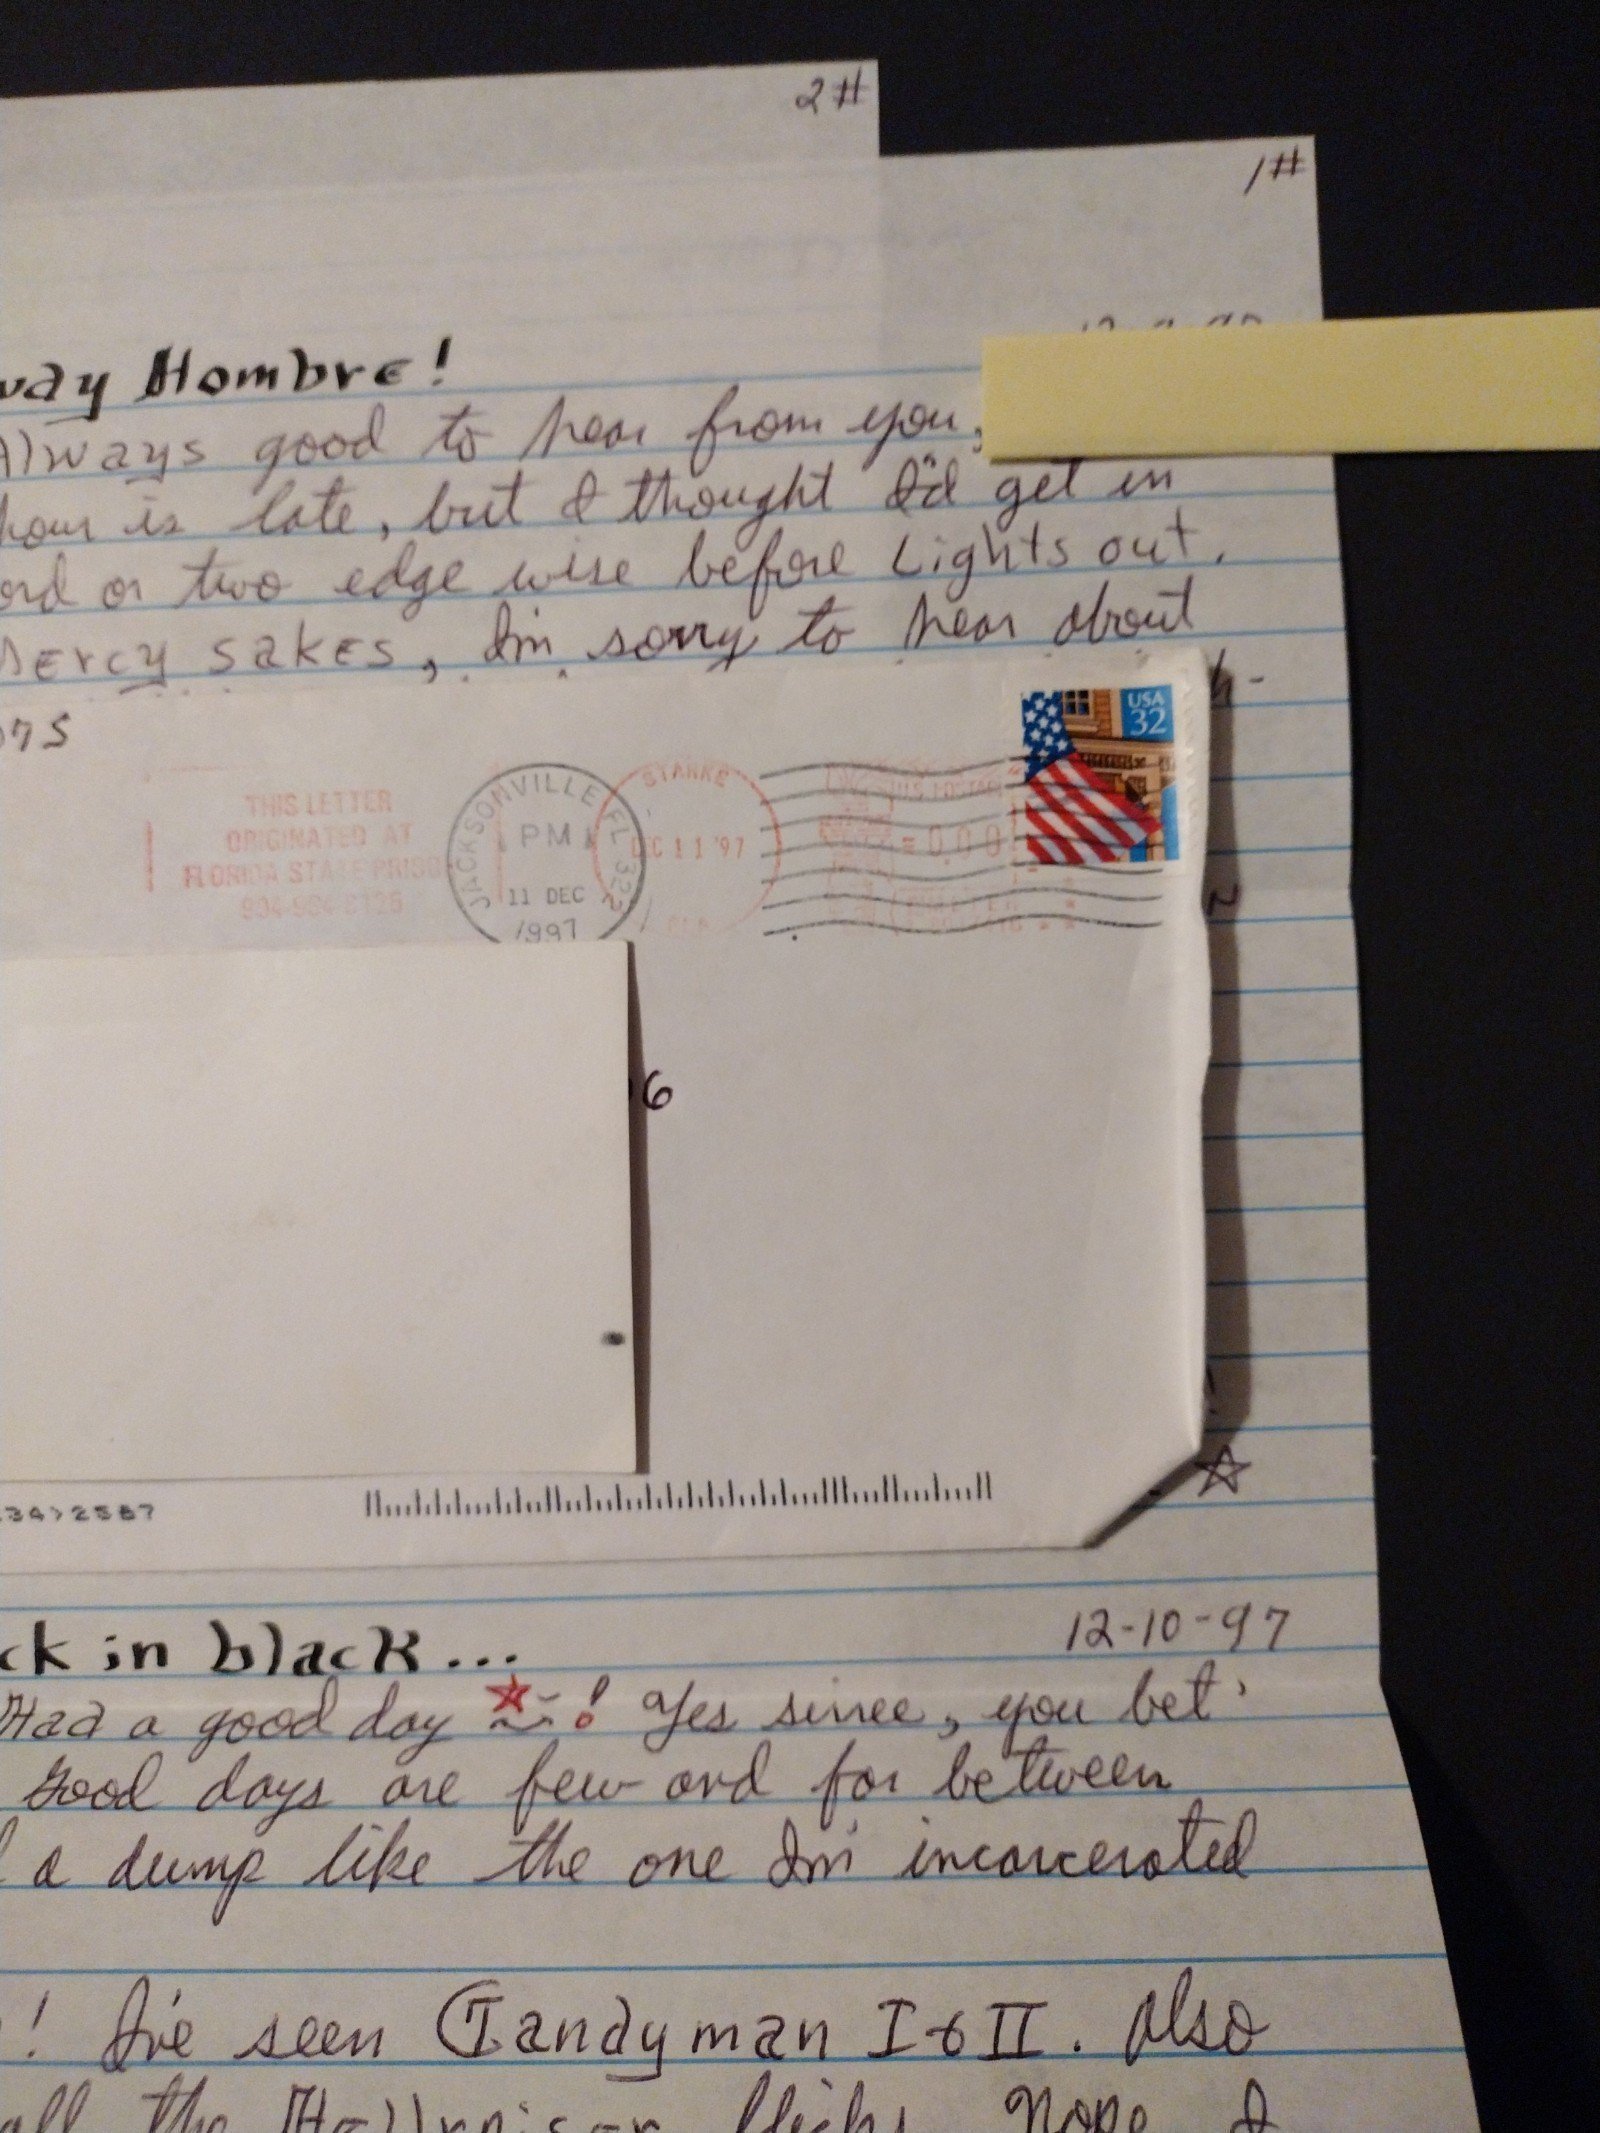 2#
1#
way Hombre!
Always good to hear from you,
hour is late, but I thought I'd get in
ord or two edge wise before Lights out.
Mercy sakes, I'm sorry to hear about
h-
ons
USA
32
THIS LETTER
ORIGINATED AT
FLORIDA STATE PRISO
JACKSONVILLE FL 322
PM
11 DEC
1997
STARKE
DEC 11 '97
U.S. POSTAGE
=0.00
6
34>2587
ck in black...
12-10-97
Had a good day ! Yes siree, you bet
Good days are few and far between
a dump like the one I'm incarcerated
! I've seen Candyman I & II. Also
all the Hellraiser flicks. Nope, I